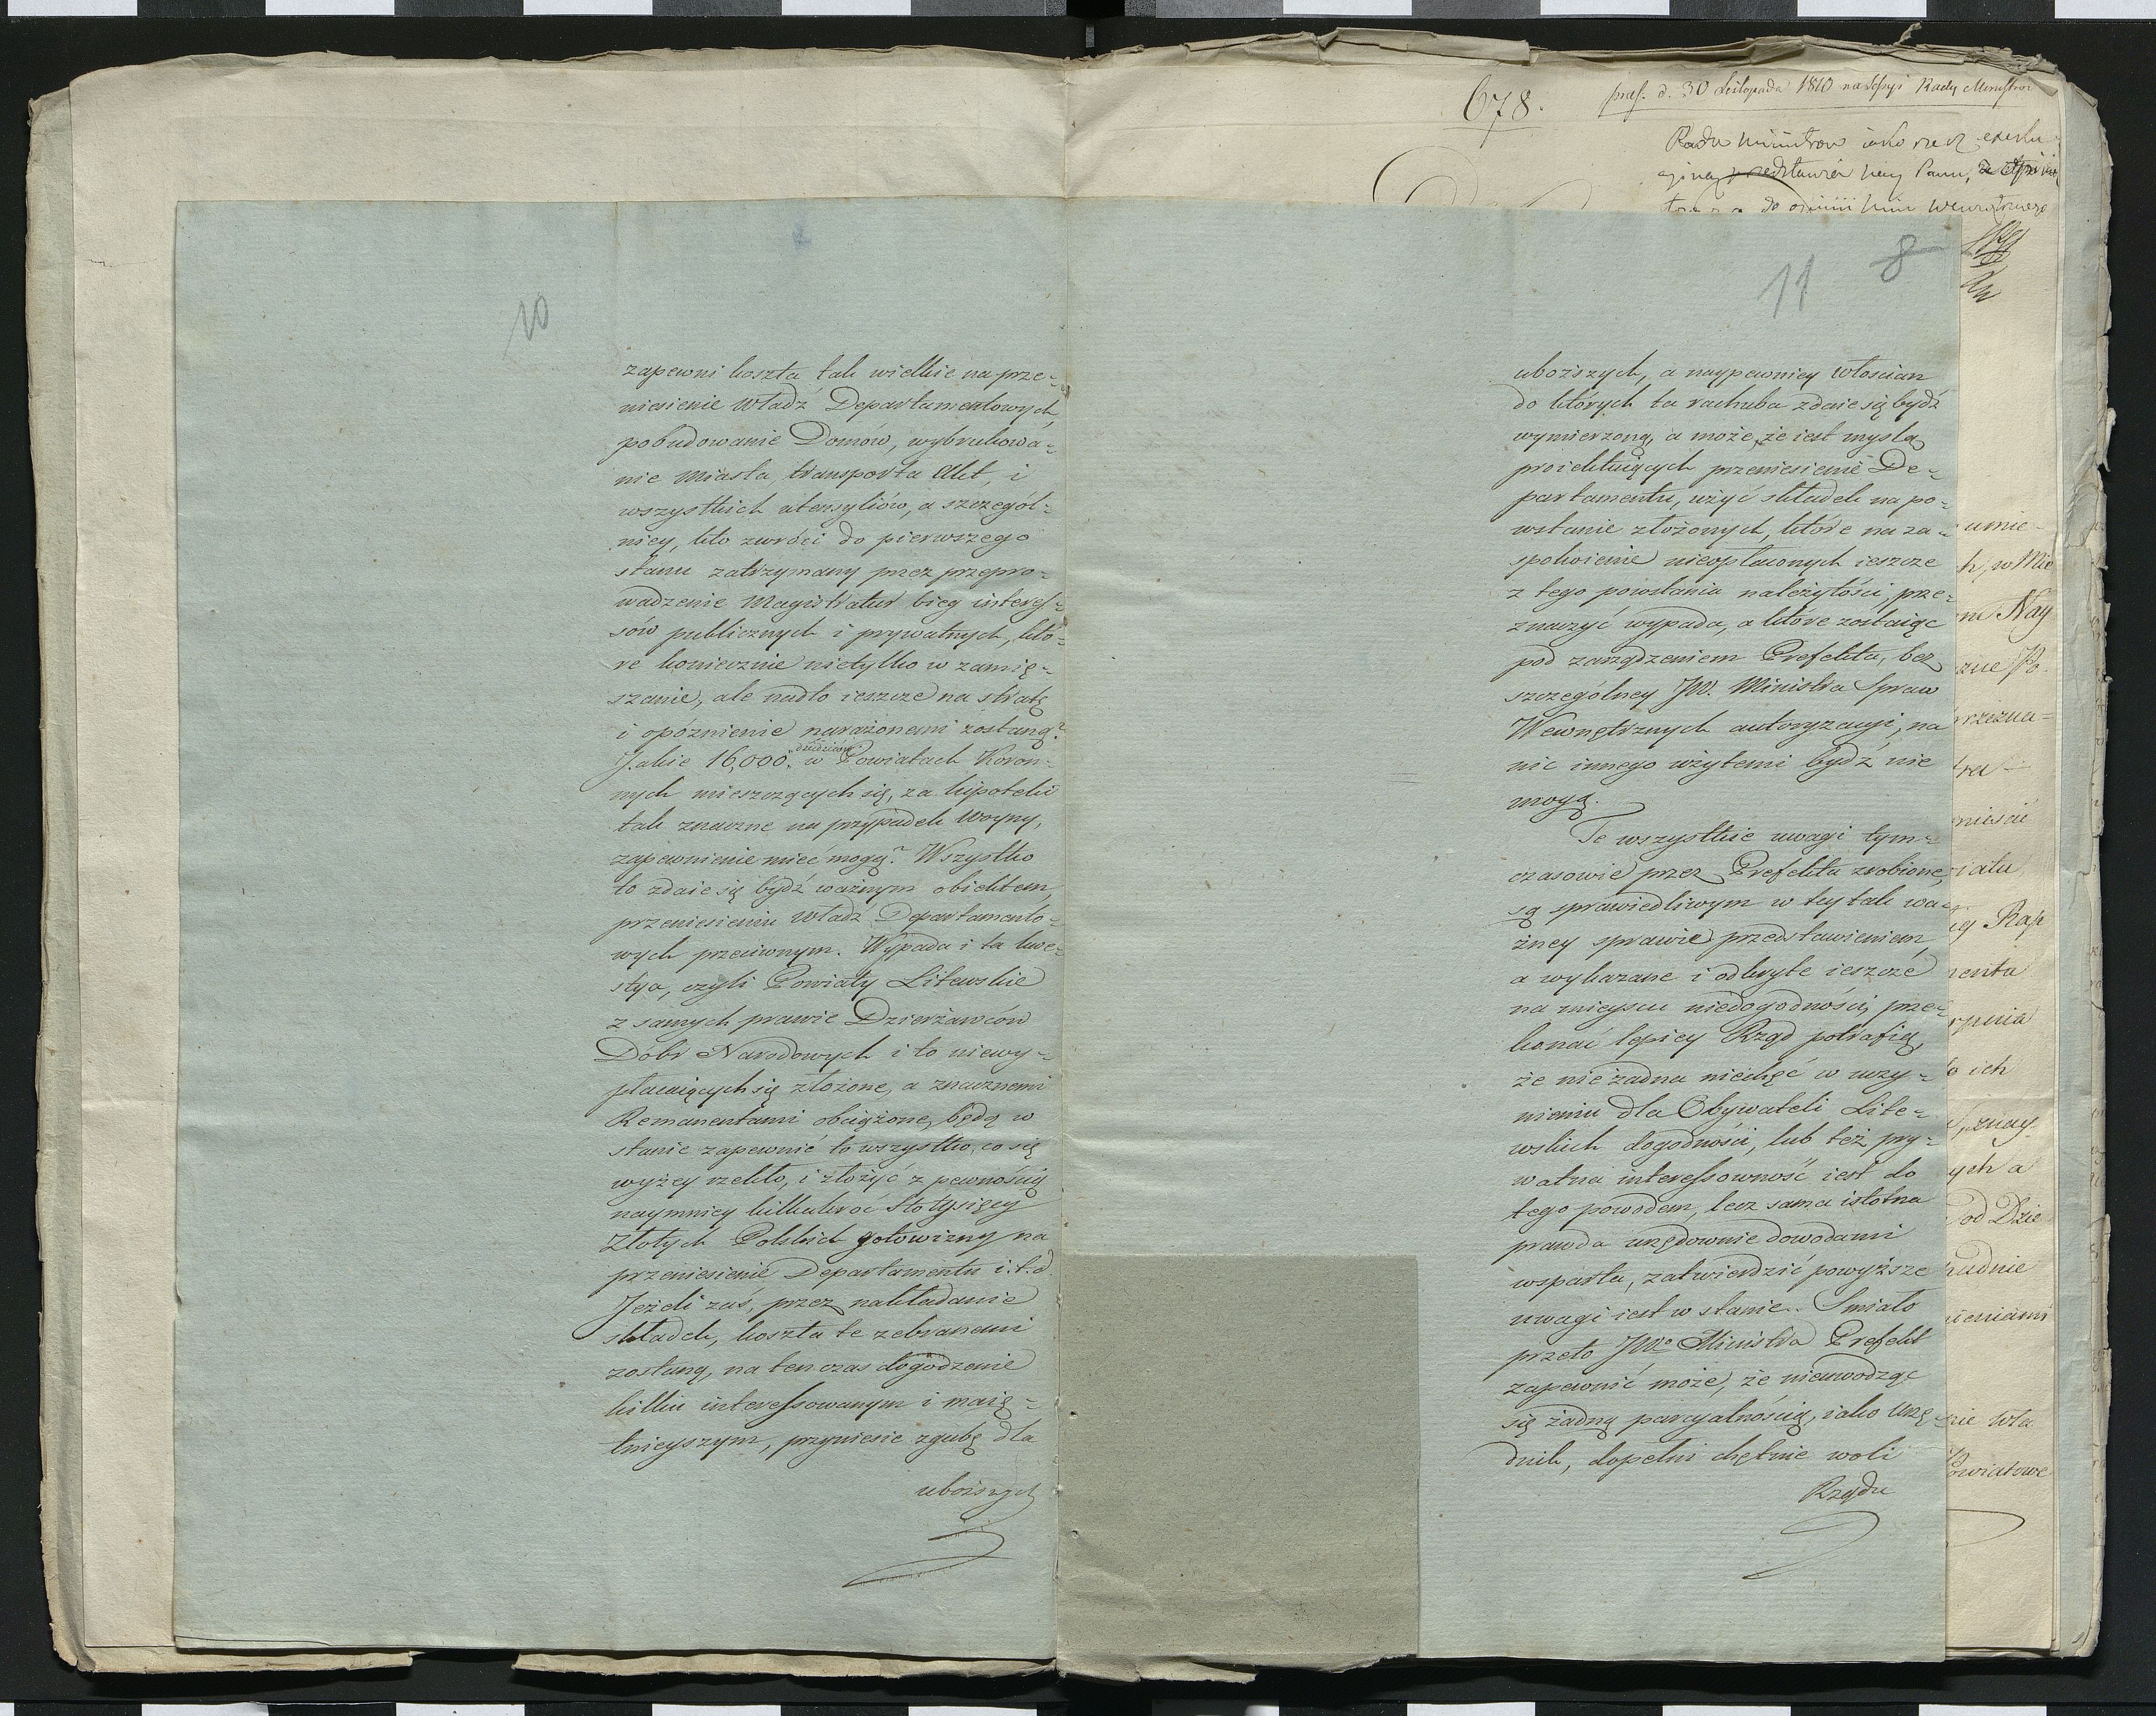 10
zapewni koszta tak wielkie na prze=
niesienie Władz Departamentowych,
pobudowanie Domów, wybrukowa=
nie Miasta, transporta Akt, i
wszystkich utensyliów, a szczegól=
niey, kto zwróci do pierwszego
stanu zatrzymany przez przepro=
wadzenie Magistratur bieg interes=
sów publicznych i prywatnych, któ=
re koniecznie nietylko w zamię=
szanie, ale nadto ieszcze na stratę
i opóznienie narażonemi zostaną?
Jakie 16,000. w Powiatach Koron=
nych mieszczących się, za hipoteki
tak znaczne na przypadek Woyny,
zapewnienie mieć mogą? Wszystko
to zdaie się bydź ważnym obiektem,
przeniesieniu Władz Departamento=
wych przeciwnym. Wypada i ta kwe=
stya, czyli Powiaty Litewskie
z samych prawie Dzierżawców
Dobr Narodowych i to niewy=
płacaiących się złożone, a znacznemi
Remanentami obciążone, będą w
stanie zapewnić to wszystko, co się
wyżey rzekło, i złożyć z pewnością
naymniey kilkakroć Stotysięcy
Złotych Polskich gotowizny na
przeniesienie Departamentu i.t.d.
Jeżeli zaś, przez nakładanie
składek, koszta te zebranemi
zostaną, na ten czas dogodzenie
kilku interessowanym i maię=
tnieyszym, przyniesie zgubę dla
uboższych
678.
praes. d. 30 Listopada 1810 na Sessyi Rady Ministrow
Rada Ministrow iako rzecz
Nay Panu,
do opinii Min Wewnętrznego
11
8
uboższych, a naypewniey włoscian
do których ta rachuba zdaie się bydź
wymierzoną, a może, że iest myslą
proiektuiących przeniesienie De=
partamentu, użyć składek na po=
wstanie złożonych, które na za=
spokoienie nieopłaconych ieszcze
z tego powstania należytości, prze=
znaczyć wypada, a które zostaiąc
pod zarządzeniem Prefekta, bez
szczególney JW. Ministra Spraw
Wewnętrznych autoryzacyi, na
nic innego użytemi bydź nie
mogą.
Te wszystkie uwagi tym=
czasowie przez Prefekta zrobione,
są sprawiedliwym w tey tak wa=
żney sprawie przedstawieniem,
a wykazane i odkryte ieszcze
na mieyscu niedogodności, prze=
konać lepiey Rząd potrafią,
że nie żadna niechęć w uczy=
nieniu dla Obywateli Lite=
wskich dogodności, lub też pry=
watna interessowność iest do
tego powodem, lecz sama istotna
prawda urzędownie dowodami
wsparta, zatwierdzić powyższe
uwagi iest w stanie. Smiało
przeto JWo Ministra Prefekt
zapewnić może, że nieuwodząc
się żadną parcyalnością, iako Urzę=
dnik, dopełni chętnie woli
Rządu